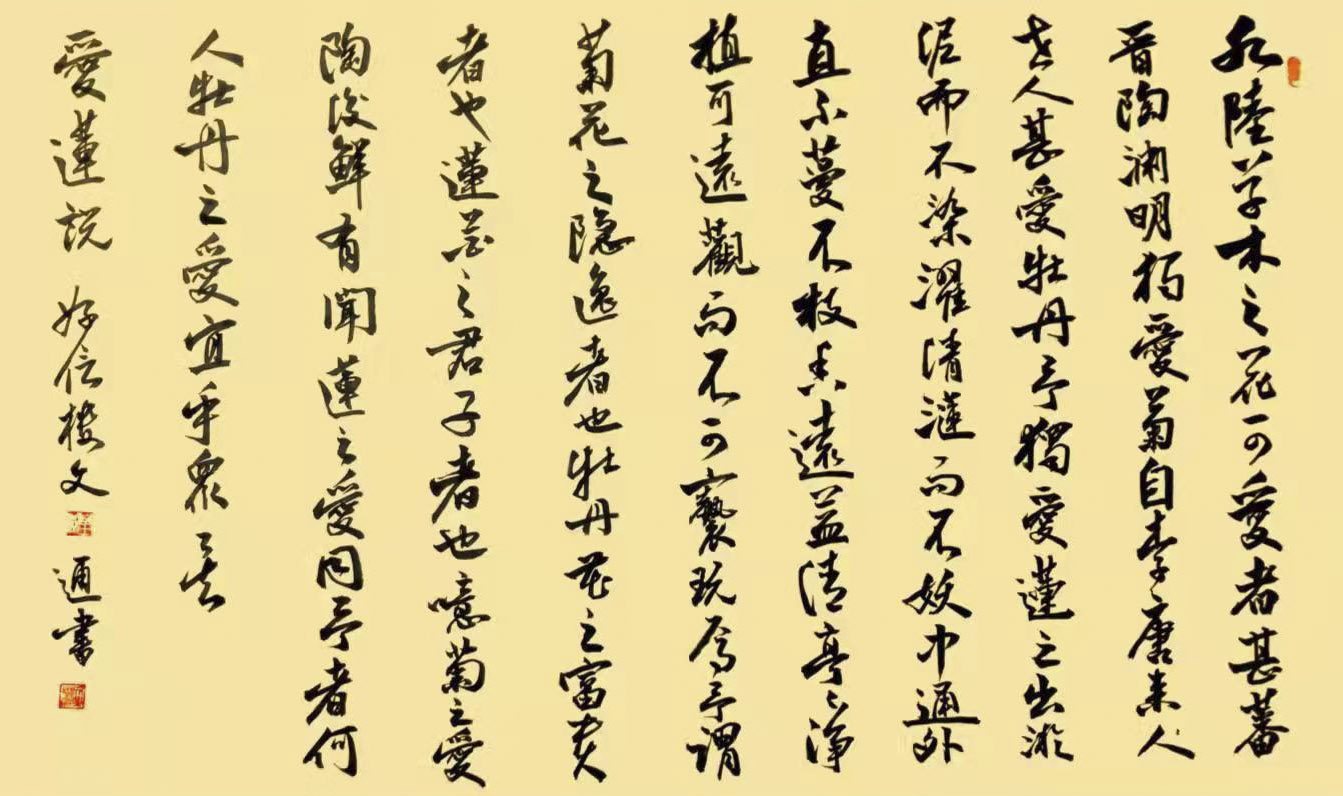 水陸草木之花可愛者甚蕃
晋陶渊明独愛菊自李唐来人
世人甚愛牡丹予獨愛蓮之出淤
泥而不染濯清漣而不妖中通外
直不蔓不枝香遠益清亭々净
植可遠觀而不可褻玩焉予謂
菊花之隐逸者也牡丹花之富貴
者也蓮花之君子者也噫菊之愛
陶後鮮有聞蓮之愛同予者何
人牡丹之愛宜乎衆矣
愛蓮説 好信文 通書